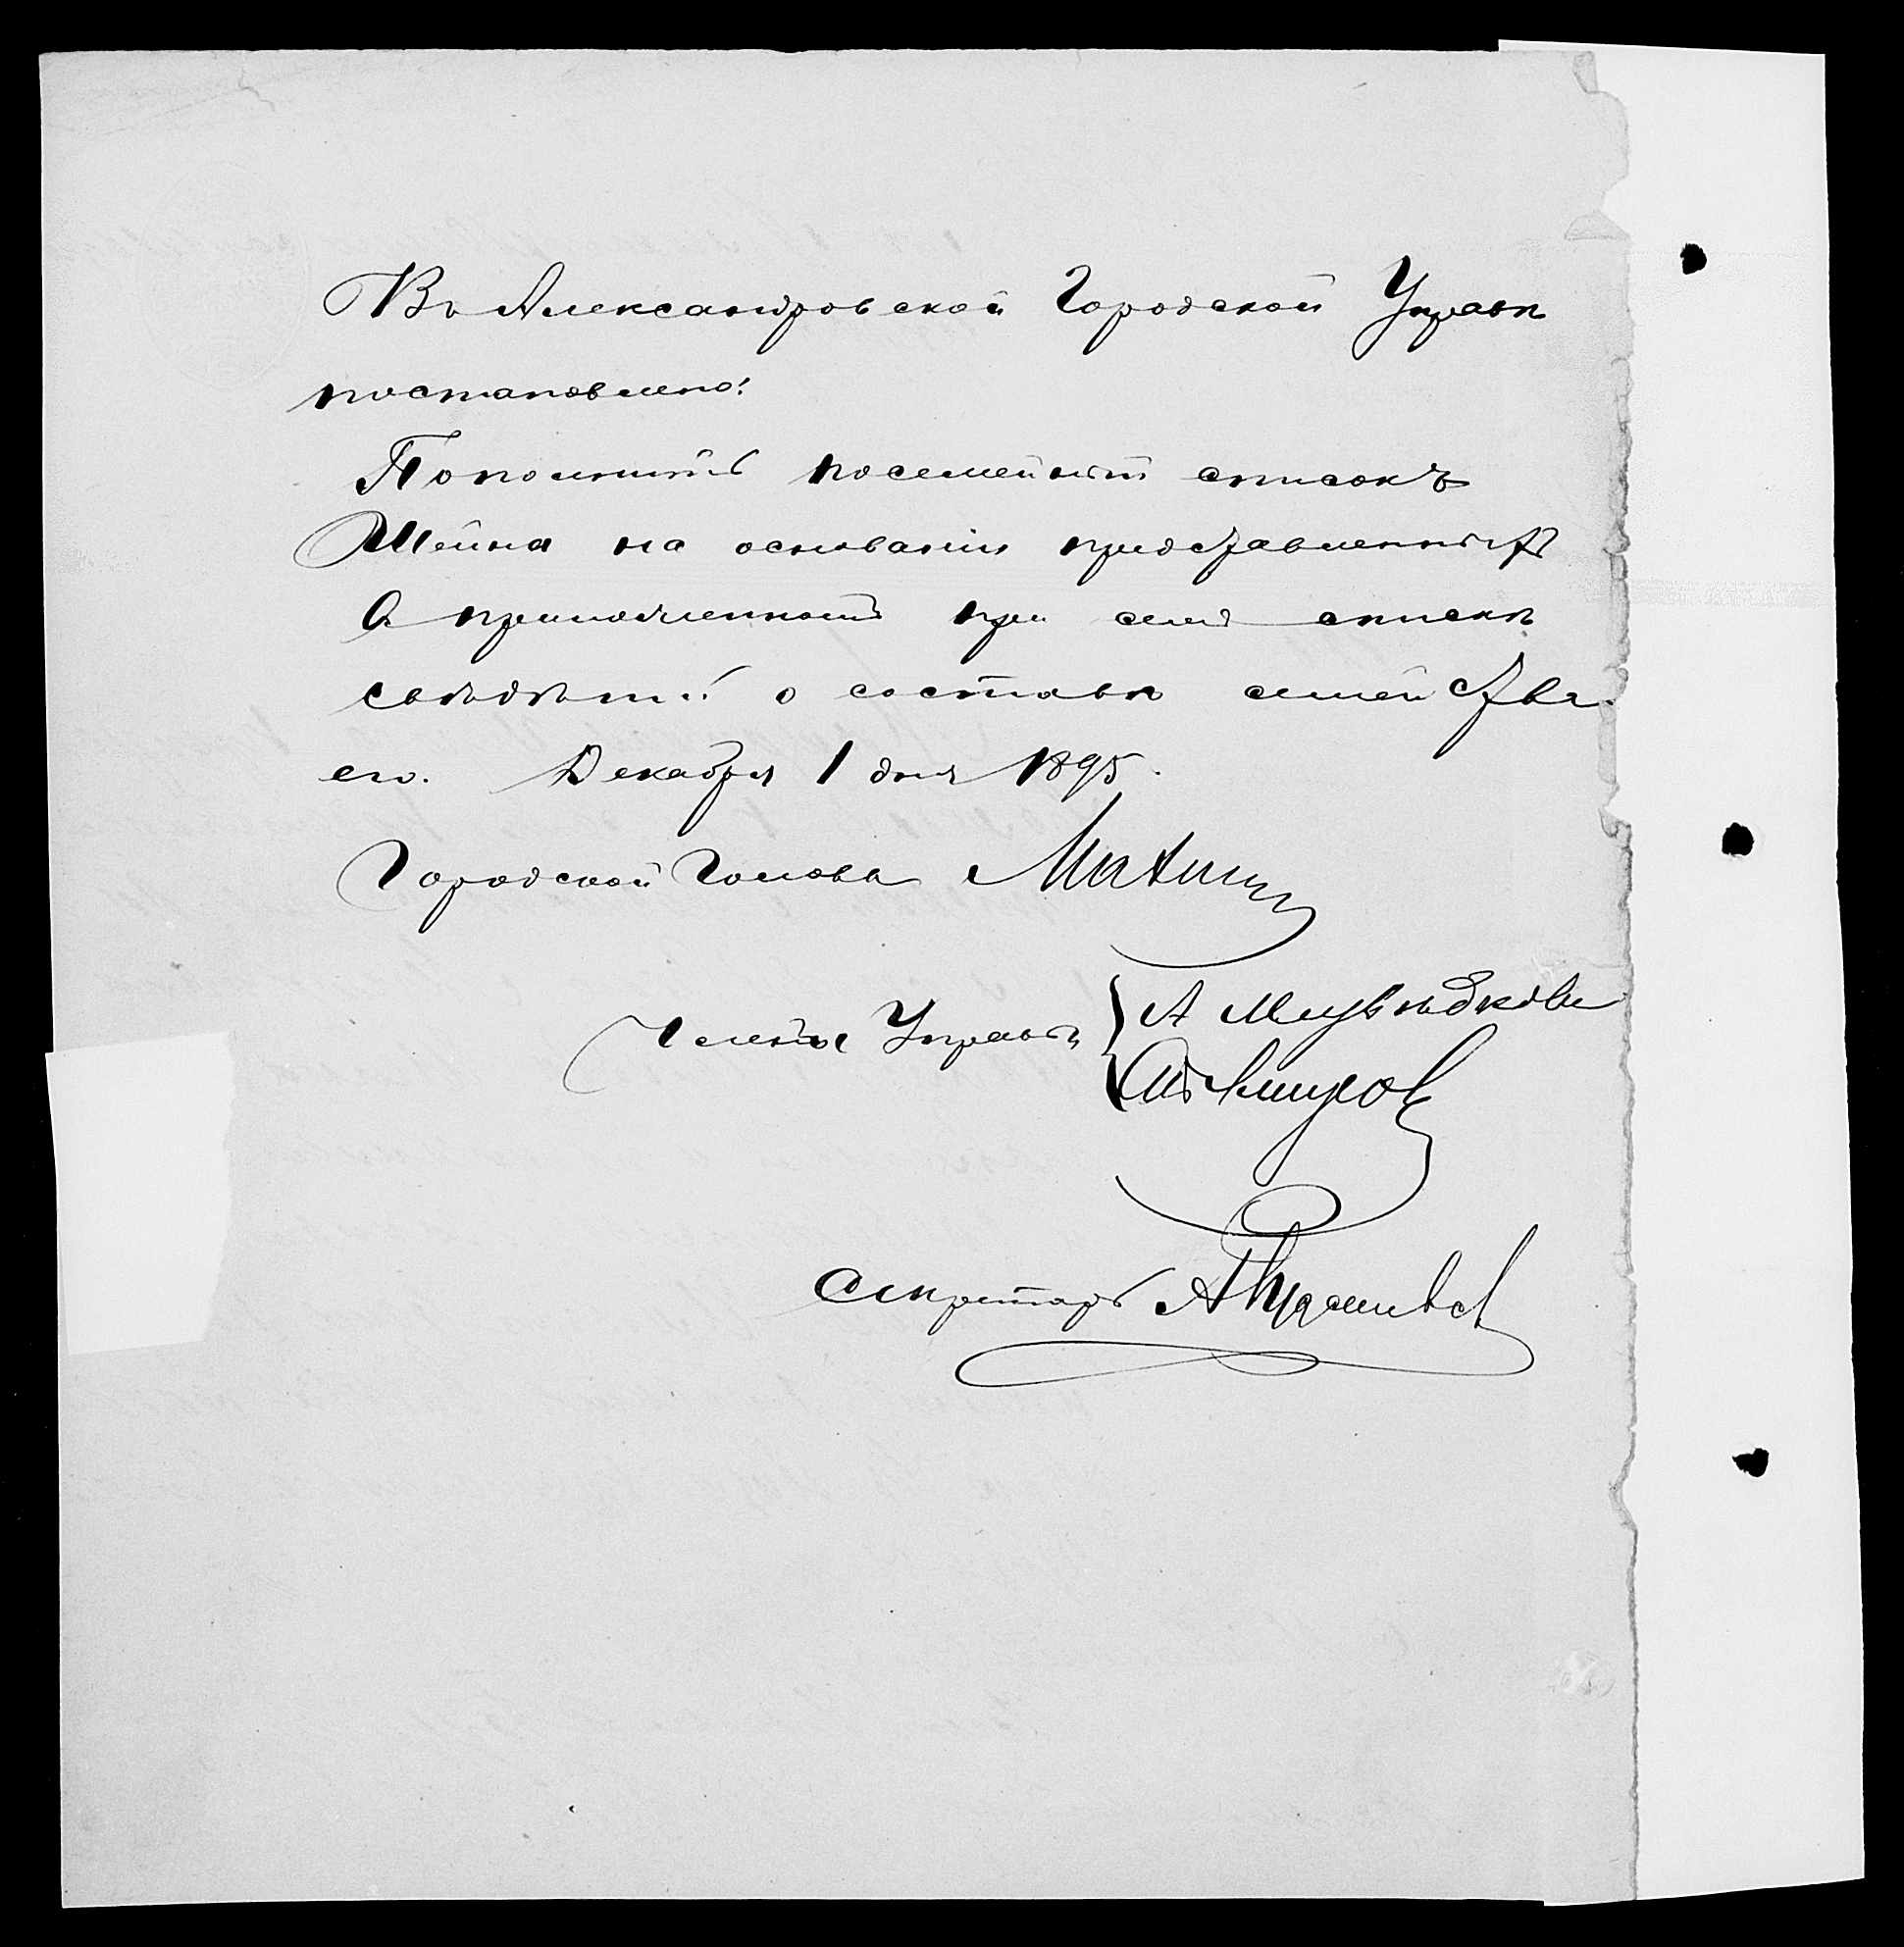 Въ Александровской Городской Управѣ
постановлено:
Пополнить посемейный списокъ
Шейна на основаніи представленныхъ
и приложенныхъ при семъ спискѣ
свѣдѣній о составѣ семейства
его. Декабря 1 дня 1895.
Городской Голова
Члены Управы
Секретарь А